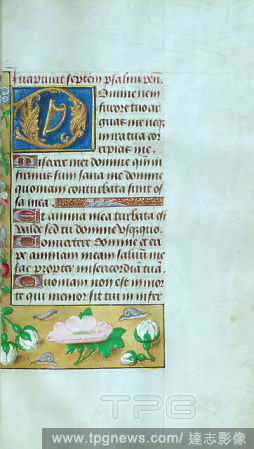 Incipiunt septem psalmi peni.
Domine ne in
furore tuo ar
guas me neqȝ
in ira tua cor
ripias me.
Miserere mei domine qm̄ in
firmus sum sana me domine
quoniam conturbata sunt os
sa mea.
Et anima mea turbata est
valde sed tu domine vsqȝquo.
Conuertere domine et eri
pe animam meam saluū me
fac propter misericordiā tuā.
Quoniam non est in mor
te qui memor sit tui in infer
TPG
www.tpgnews.com/ 達志影像